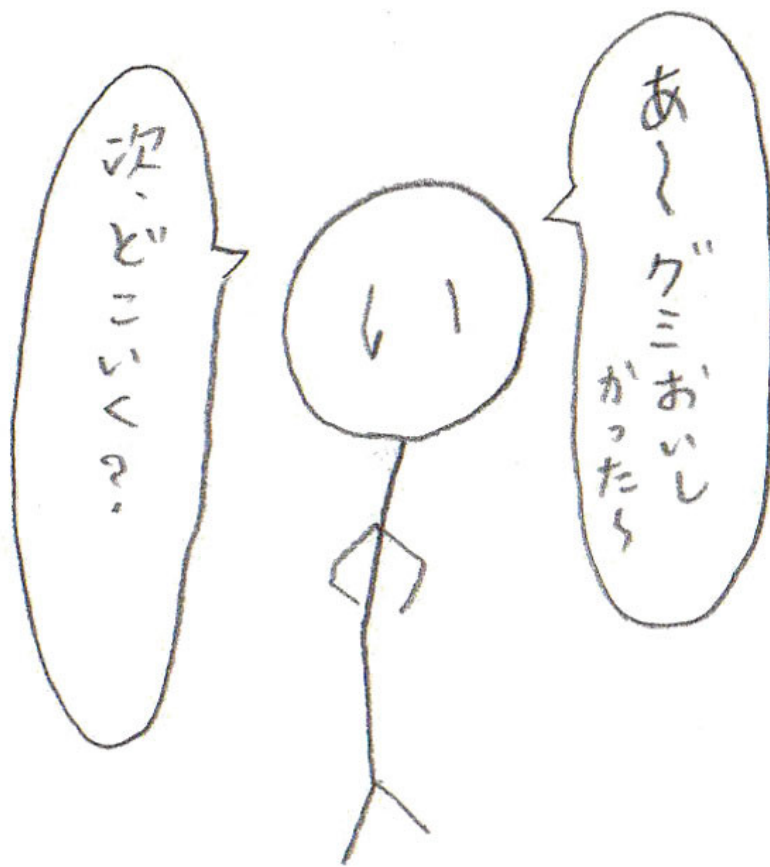 あ〜〜グミおいし
かった〜
次、どこいく?